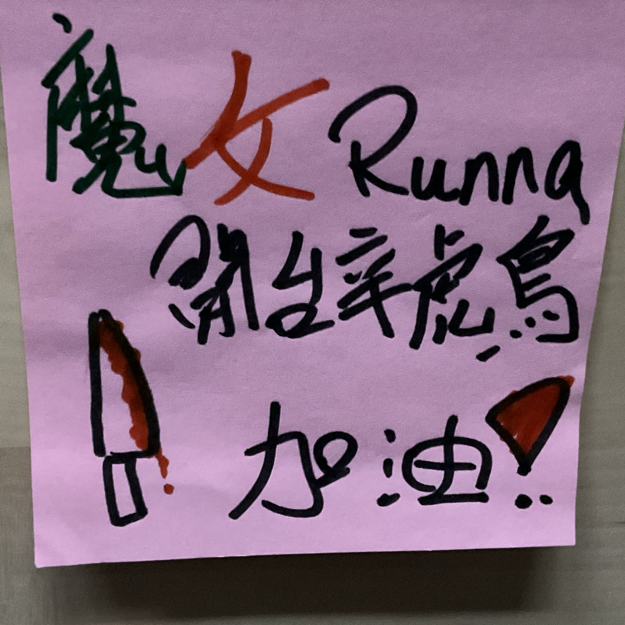 魔女Runna
開台辛虎鳥
加油!